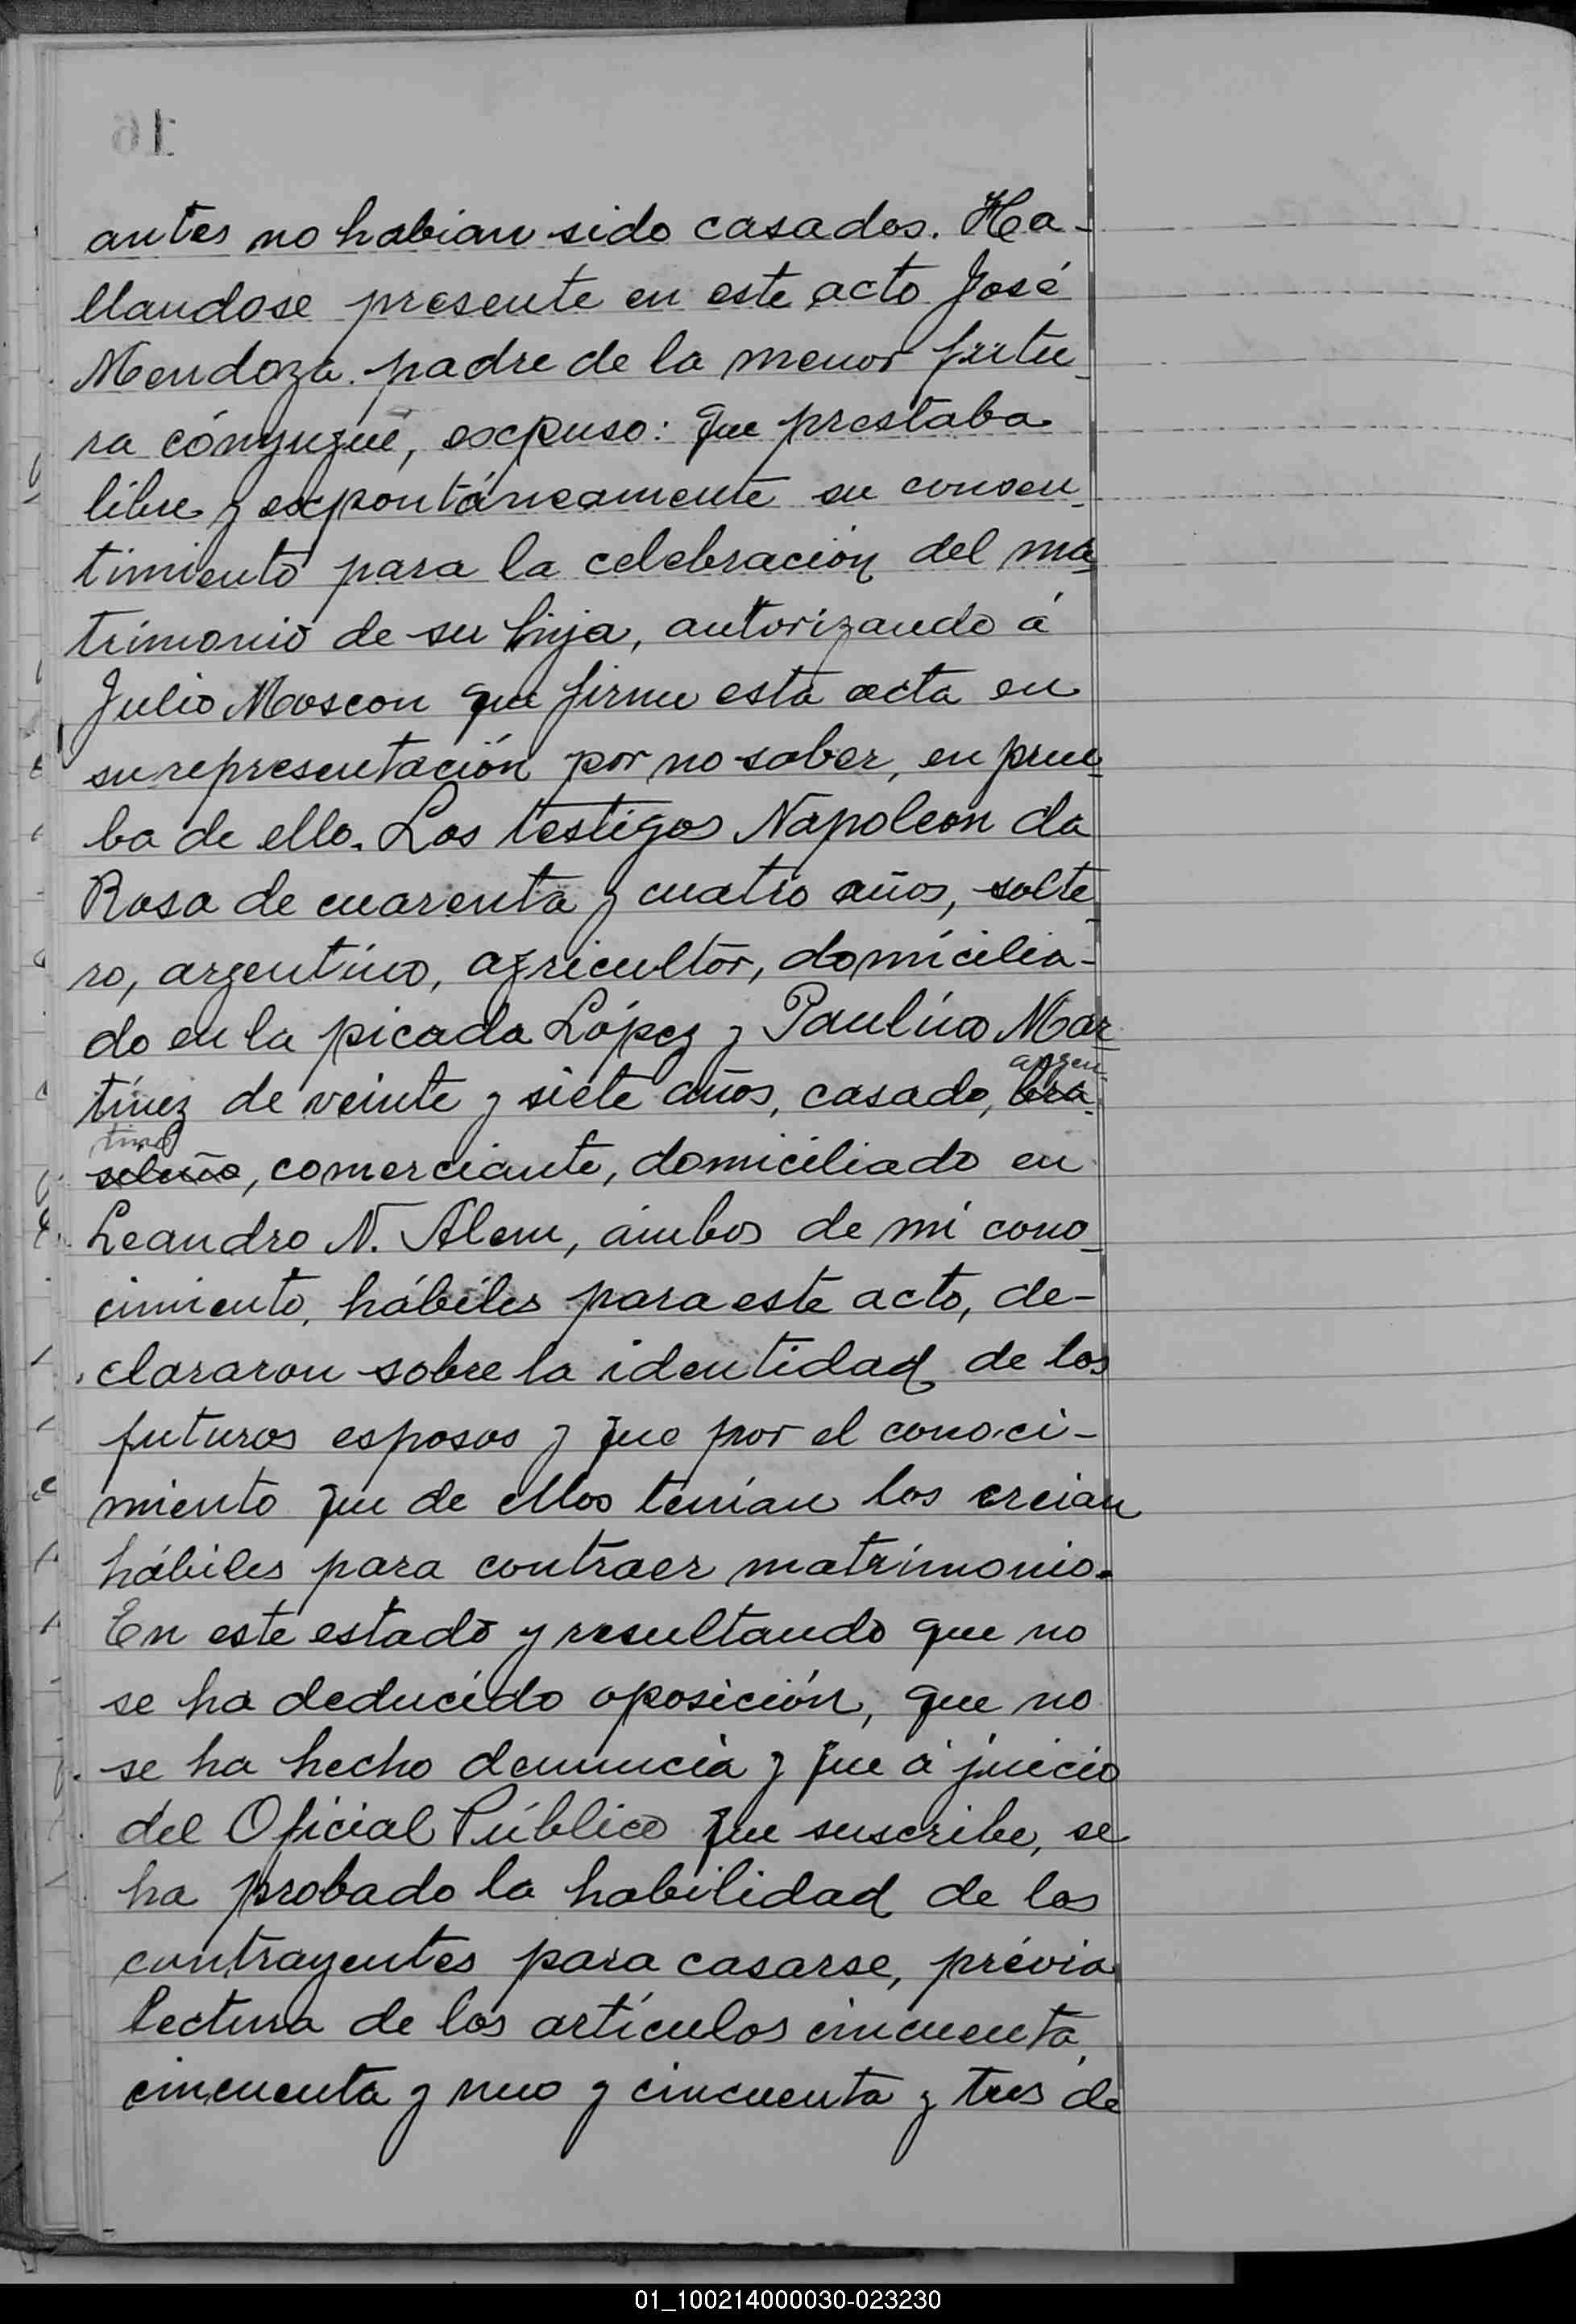 antes no habian sido casados. Ha-
llandose presente en este acto José
Mendoza padre de la menor futu-
ra cónyugue, expuso: que prestaba
libre y expontáneamente su consen-
timiento para la celebración del ma-
trimonio de su hija, autorizando á
Julio Moscon que firme esta acta en
su representación por no saber, en prue-
ba de ello. Los testigos Napoleon da
Rosa de cuarenta y cuatro años, solte-
ro, argentino, agricultor, domicilia-
do en la picada López y Paulino Mar-
argen-
tínez de veinte y siete años, casado, bra-
tino
sileño, comerciante, domiciliado en
Leandro N. Alem, ámbos de mi cono-
cimiento, hábiles para este acto, de-
clararon sobre la identidad de los
futuros esposos y que por el conoci-
miento que de ellos tenían los creian
hábiles para contraer matrimonio.
En este estado y resultando que no
se ha deducido oposición, que no
se ha hecho denuncia y que á juicio
del Oficial Público que suscribe, se
ha probado la habilidad de los
contrayentes para casarse, prévia
lectura de los artículos cincuenta,
cincuenta y uno y cincuenta y tres de
01_100214000030-023230